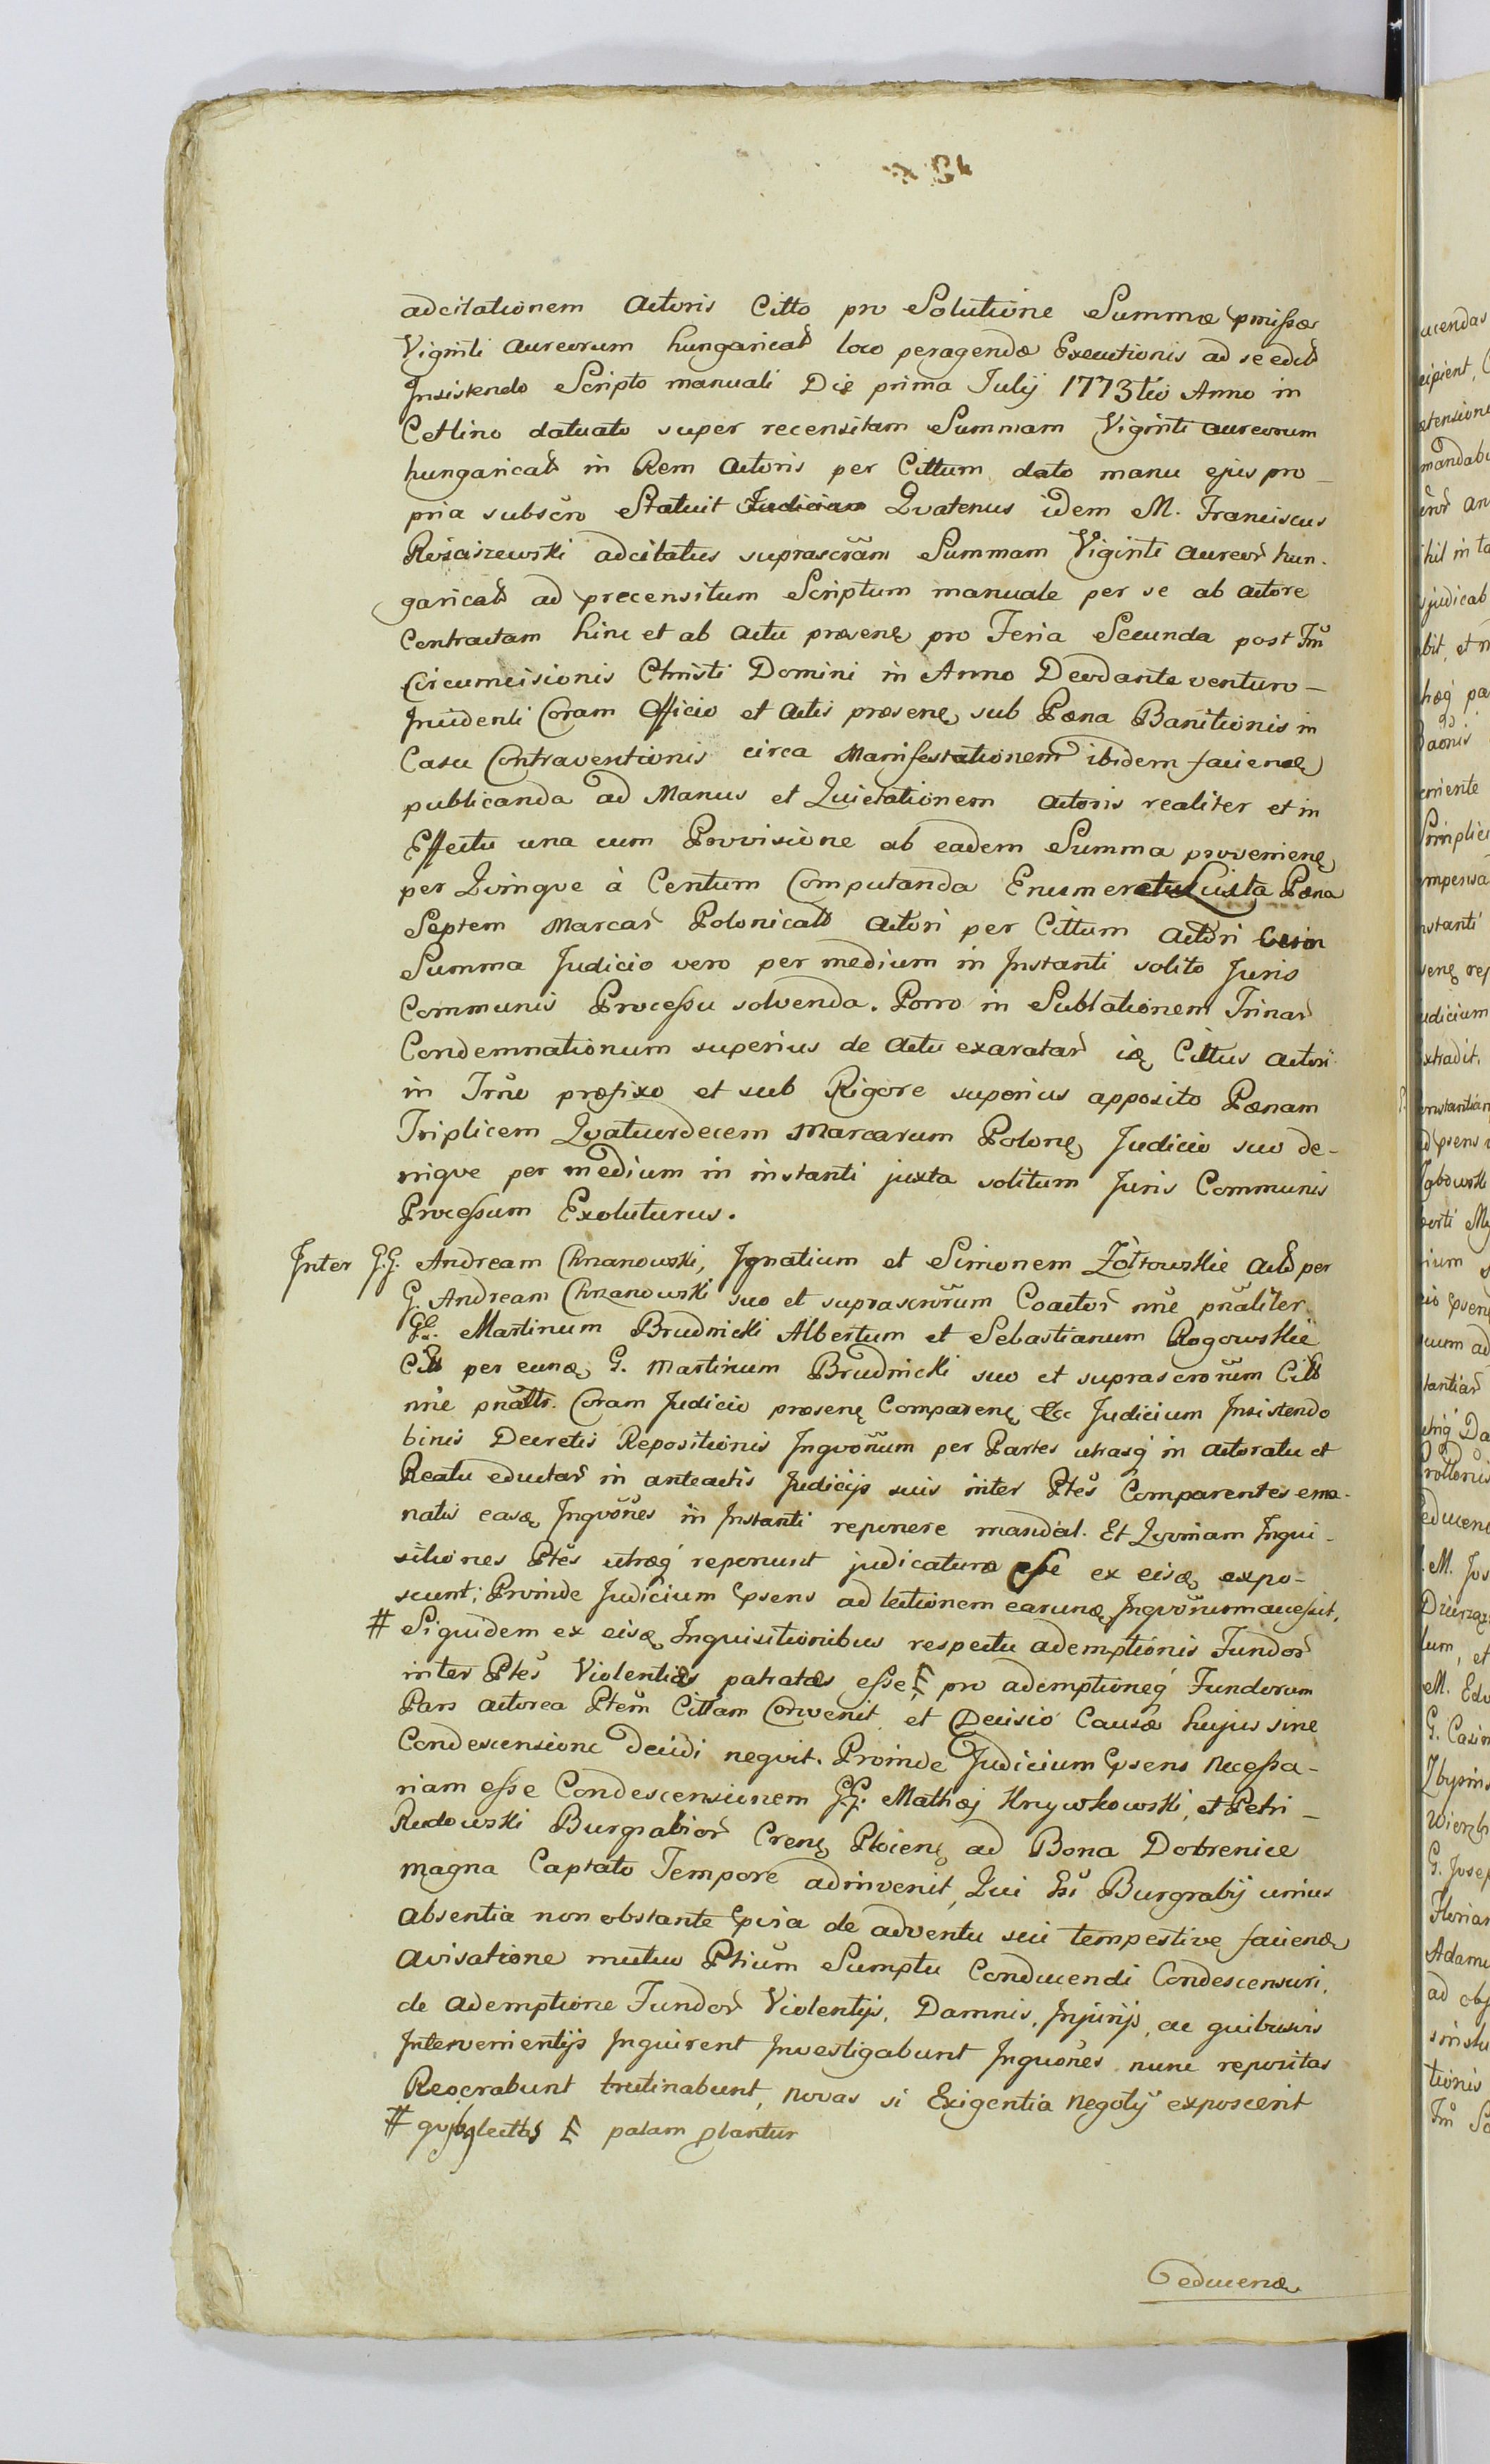 adcitationem Actoris Citto pro Solutione Summæ pmissæ
Viginti Aureorum hungaricał loco peragendæ Executionis ad se edił
Insistendo Scripto manuali Die prima Julij 1773tio Anno in
Cetlino datuato super recensitam Summam Viginti aureorum
hungaricał in Rem Actoris per Cittum dato manu ejus pro-
pria subscro Statuit Judicium Qvatenus idem M. Franciscus
Rościszewski adcitatus suprascram Summam Viginti aureor hun-
garicał ad precensitum Scriptum manuale per se ab actore
Contractam hinc et ab Actu præsenę pro Feria Secunda post Fm
Circumcisionis Christi Domini in Anno Deodante venturo-
Incidenti Coram Officio et Actis præsenę sub Pæna Banitionis in
Casu Contraventionis circa Manifestationem ibidem facienę
publicanda ad Manus et Quietationem actoris realiter et in
Effectu una cum Provisione ab eadem Summa provenienę
per Qvinqve à Centum Computanda Enumeret Luista Pæna
Septem Marcar Polonicał Actori per Cittum Actori
Summa Judicio vero per medium in Instanti solito Juris
Communis Processu solvenda. Porro in Sublationem Trinar
Condemnationum superius de Actu exaratar ię Cittus actori
in Trno præfixo et sub Rigore superius apposito Pænam
Triplicem Qvatuordecem Marcarum Polonę Judicio suo de-
niqve per medium in instanti juxta solitum Juris Communis
Processum Exoluturus.
Inter G.G. Andream Chrzanowski, Ignatium et Simonem Żółtowskie Actł per
G. Andream Chrzanowski suo et suprascrorum Coactor nne pnaliter.
GG. Martinum Brudnicki Albertum et Sebastianum Rogowskie
Citł per eunę G. Martinum Brudnicki suo et suprascrorum Citł
nne pnaltr. Coram Judicio præsenę Comparenę &c Judicium Insistendo
binis Decretis Repositionis Inqvonum per Partes utrasq in actoratu et
Reatu eductar in anteactis Judicijs suis inter Ptes Comparentes ema-
natis easę Inqvones in Instanti reponere mandat. Et Qvoniam Inqui-
sitiones Ptes utræq reponunt judicaturæ esse ex eisę expo-
scunt; Proinde Judicium psens ad lectionem earunę Inqvonum accessit,
# Siquidem ex eisę Inquisitionibus respectu ademptionis Fundor
inter Ptes Violentias patratas esse E pro ademptioneq Fundorum
Pars actorea Ptem Cittam Convenit et Decisio Causæ hujus sine
Condescensione decidi neqvit. Proinde Judicium psens necessa-
riam esse Condescensionem GG. Mathæj Krzywkowski, et Petri-
Rudowski Burgrabior Crenę Plocienę ad Bona Dobrenice
magna Captato Tempore adinvenit, Qui Hi Burgrabij unius
absentia non obstante pvia de adventu sui tempestive facienę
avisatione mutuo Ptium Sumptu Conducendi Condescensuri,
de ademptione Fundor Violentijs, Damnis, Injurijs, ac quibusvis
Intervenientijs Inquirent Investigabunt Inquones nunc repositas
Reserabunt trutinabunt, novas si Exigentia negotij exposcerit
# qvibq lectis E patam plantur
educenę